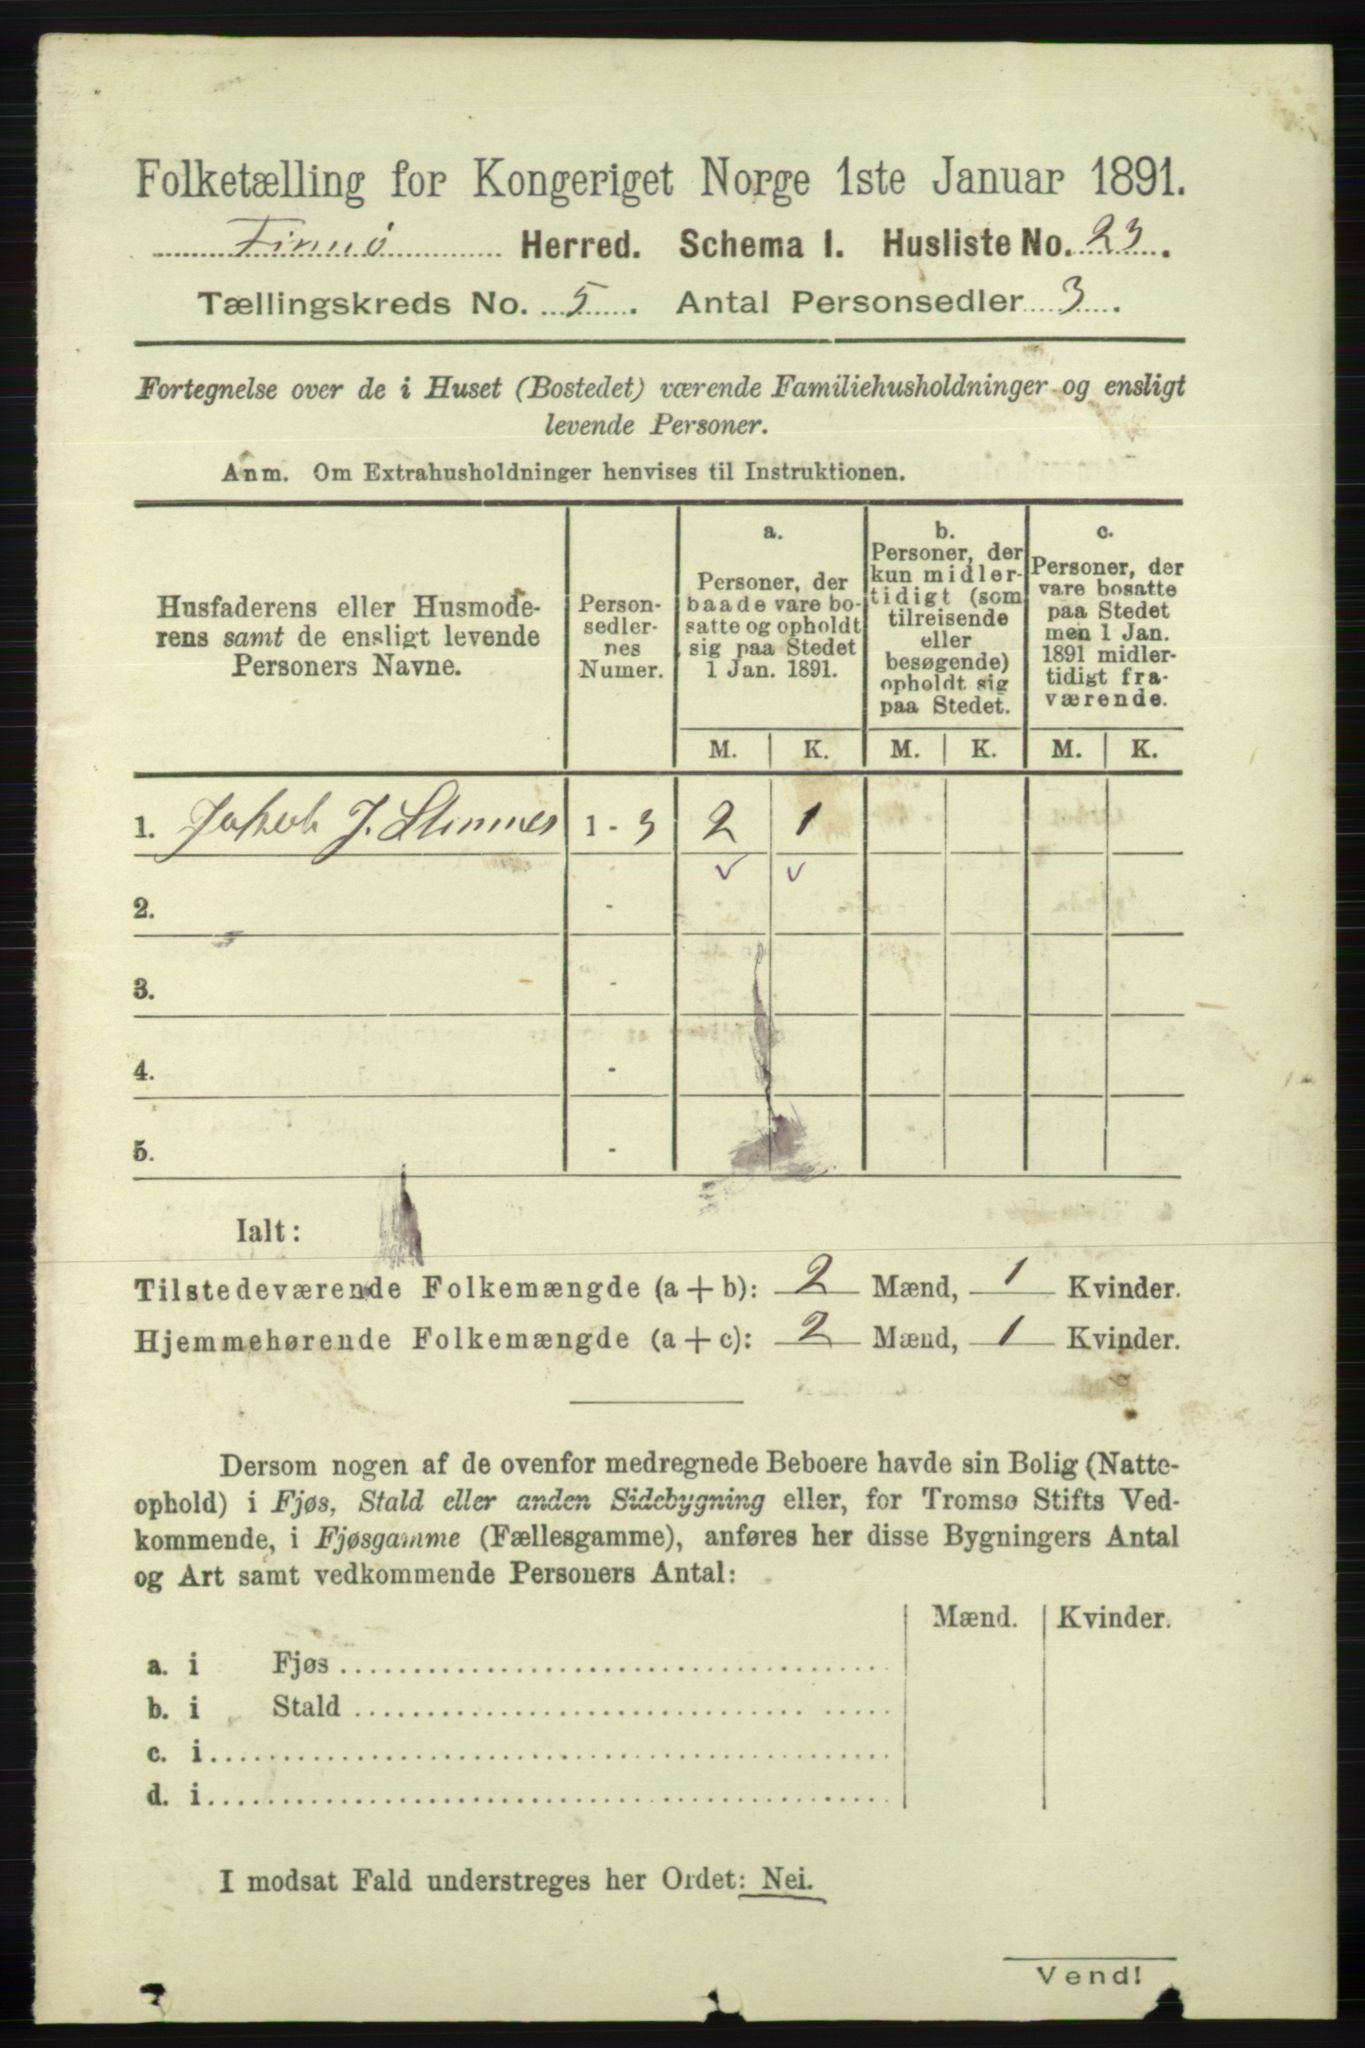 Folketælling for Kongeriget Norge 1ste Januar 1891.
Finnø Herred. Schema I. Husliste No. 23.
Tællingskreds No. 5. Antal Personsedler 3.
Fortegnelse over de i Huset (Bostedet) værende Familiehusholdninger og ensligt
levende Personer.
Anm. Om Extrahusholdninger henvises til Instruktionen.
Husfaderens eller Husmode-
rens samt de ensligt levende
Personers Navne.
Person-
sedler-
nes
Numer.
a.
Personer, der
baade vare bo-
satte og opholdt
sig paa Stedet
1 Jan. 1891.
b.
Personer, der
kun midler-
tidigt (som
tilreisende
eller
besøgende)
opholdt sig
paa Stedet.
c.
Personer, der
vare bosatte
paa Stedet
men 1 Jan.
1891 midler-
tidigt fra-
værende.
M. K. M. K. M. K.
1. Jakob J. 1 - 3 2 1
2. -
3. -
4. -
5. -
Ialt:
Tilstedeværende Folkemængde (a + b): 2 Mænd, 1 Kvinder.
Hjemmehørende Folkemængde (a + c): 2 Mænd, 1 Kvinder.
Dersom nogen af de ovenfor medregnede Beboere havde sin Bolig (Natte-
ophold) i Fjøs, Stald eller anden Sidebygning eller, for Tromsø Stifts Ved-
kommende, i Fjøsgamme (Fællesgamme), anføres her disse Bygningers Antal
og Art samt vedkommende Personers Antal:
Mænd. Kvinder.
a. i Fjøs
b. i Stald
c. i
d. i
I modsat Fald understreges her Ordet: Nei.
Vend!